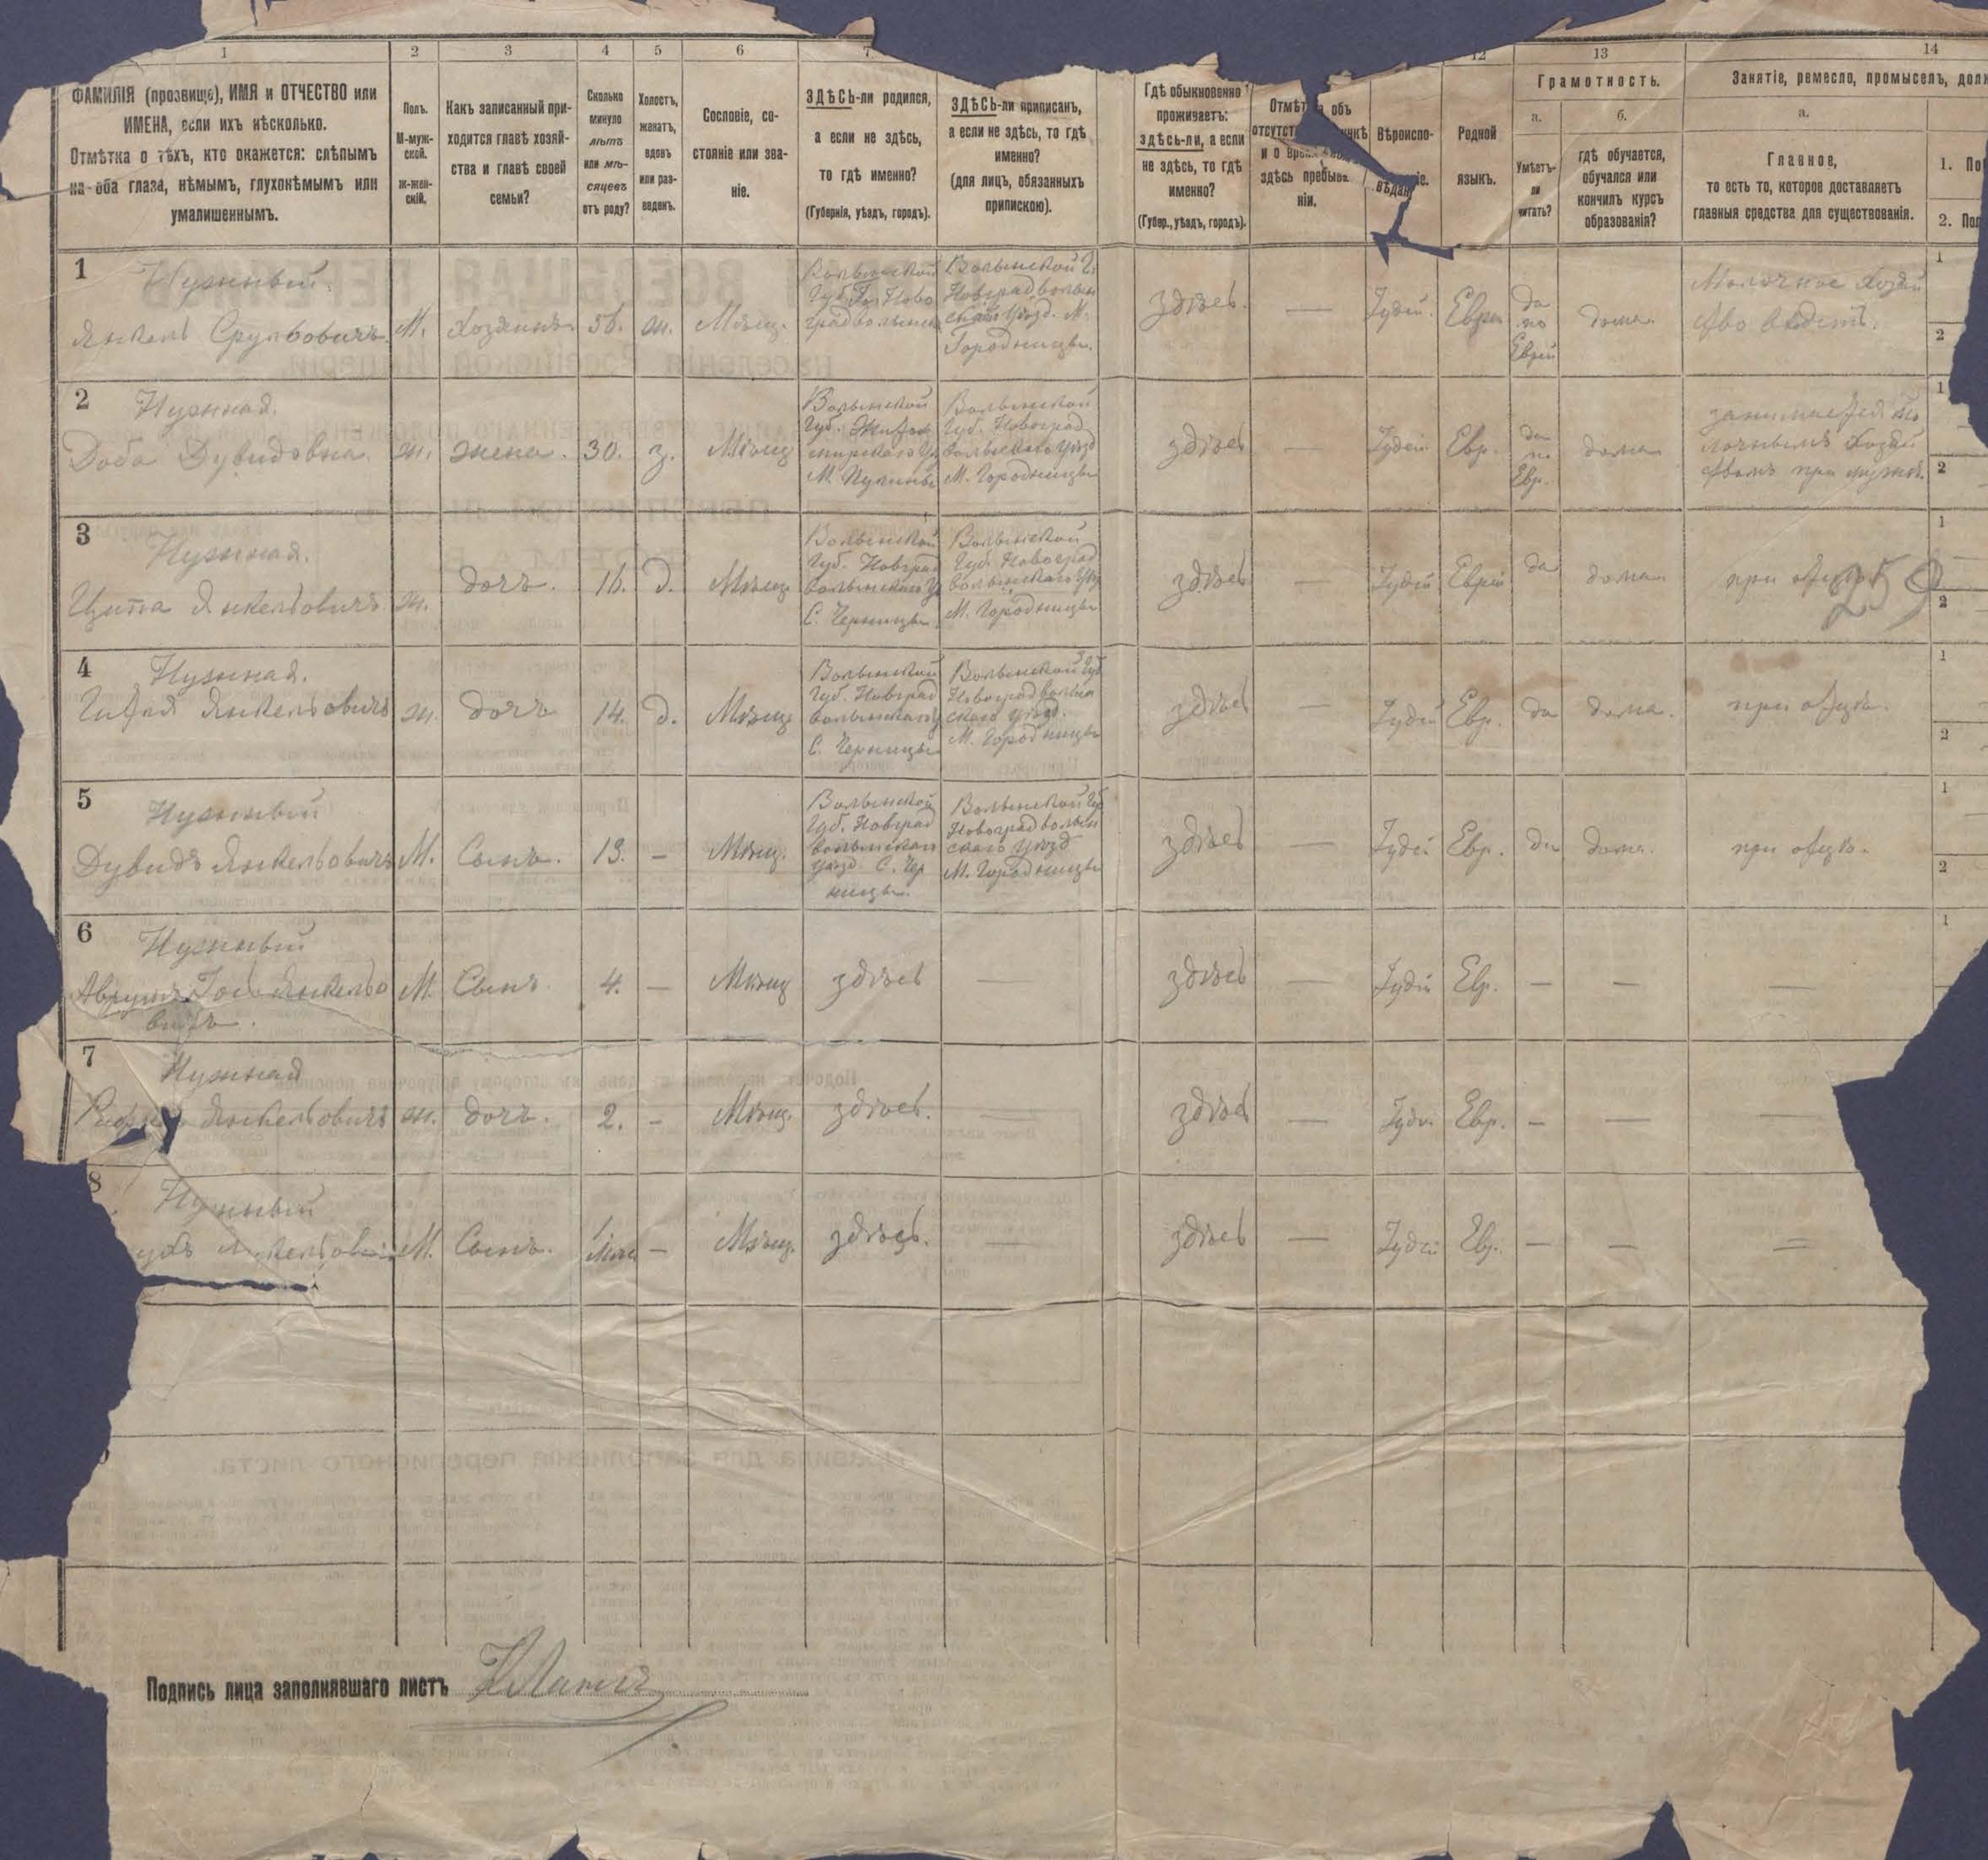 1
2
3
4
5
6
7
12
13
14
ФАМИЛІЯ (прозвище), ИМЯ и ОТЧЕСТВО или
ИМЕНА, если ихъ нѣсколько.
Отмѣтка о тѣхъ, кто окажется: слѣпымъ
на оба глаза, нѣмымъ, глухонѣмымъ или
умалишеннымъ.
Полъ.
М-муж-
ской.
ж-жен-
скій.
Какъ записанный при-
ходится главѣ хозяй-
ства и главѣ своей
семьи?
Сколько
минуло
лѣтъ
или мѣ-
сяцевъ
отъ роду?
Холостъ,
женатъ,
вдовъ
или раз-
веденъ.
Сословіе, со-
стояніе или зва-
ніе.
ЗДѢСЬ-ли родился,
а если не здѣсь,
то гдѣ именно?
(Губернія, уѣздъ, городъ).
ЗДѢСЬ-ли приписанъ,
а если не здѣсь, то гдѣ
именно?
(для лицъ, обязанныхъ
припискою).
Гдѣ обыкновенно
проживаетъ:
здѣсь-ли, а если
не здѣсь, то гдѣ
именно?
(Губер., уѣздъ, городъ).
объ
и о
здѣсь
ніи.
Вѣроиспо-
Родной
языкъ.
Грамотность.
а.
Умѣетъ-
ли
читать?
б.
гдѣ обучается,
обучался или
кончилъ курсъ
образованія?
Занятіе, ремесло, промыселъ,
а.
Главное,
то есть то, которое доставляетъ
главныя средства для существованія.
1.
2.
1
Нужный.
Янкель Срулевичъ М. Хозяинъ 56. ж. Мѣщ.
Волынской
Губ. Гор. Ново
градволынск
Волынской Г.
Новградволын
скаго уѣзд. М.
Городницы.
здѣсь. — Іудей. Евр.
да
по
Еврей
дома.
Молочное Хозяй
ство ведетъ.
1
2
2
Нужная.
Доба Дувидовна ж. жена. 30. з. Мѣщ
Волынской
Губ. Жито
мирскаго У
М. Пулины
Волынской
Губ. Новоград
волынскаго уѣзд
М. Городницы
здѣсь — Іудей Евр.
да
по
Евр.
дома
занимается Мо
лочнымъ Хозяй
ствомъ при мужѣ.
1
2
3
Нужная.
Ципа Янкельовичъ ж. дочь. 16. д. Мѣщ
Волынской
Губ. Новград
волынскаго У
С. Черницы
Волынской
Губ. Новоград
волынскаго Уѣзд
М. Городницы
здѣсь — Іудей Еврей да дома при отцѣ
259
1
2
4
Нужная.
Янкельовичъ ж. дочь 14. д. Мѣщ
Волынской
Губ. Новград
волынскаго У
С. Черницы
Волынской Губ
Новоградволын
скаго уѣзд.
М. Городницы
здѣсь — Іудей Евр. да дома. при отцѣ.
1
2
5
Нужный
Дувидъ Янкельовичъ М. Сынъ. 13. — Мѣщ.
Волынской
Губ. Новград
волынскаго
уѣзд. С. Чер
ницы.
Волынской Губ
Новоградволын
скаго уѣзд
М. Городницы
здѣсь — Іудей Евр. да дома. при отцѣ.
1
2
6
Нужный
Аврумъ Янкельо
вичъ.
М. Сынъ. 4. — Мѣщ здѣсь — здѣсь — Іудей Евр. — — —
1
7
Нужная
Янкельовичъ ж. дочь. 2. — Мѣщ. здѣсь. — здѣсь — Іудей Евр. — — —
8
Нужный
М. Сынъ. 1 — Мѣщ. здѣсь. — здѣсь — Іудей Евр. — — —
Подпись лица заполнявшаго листъ